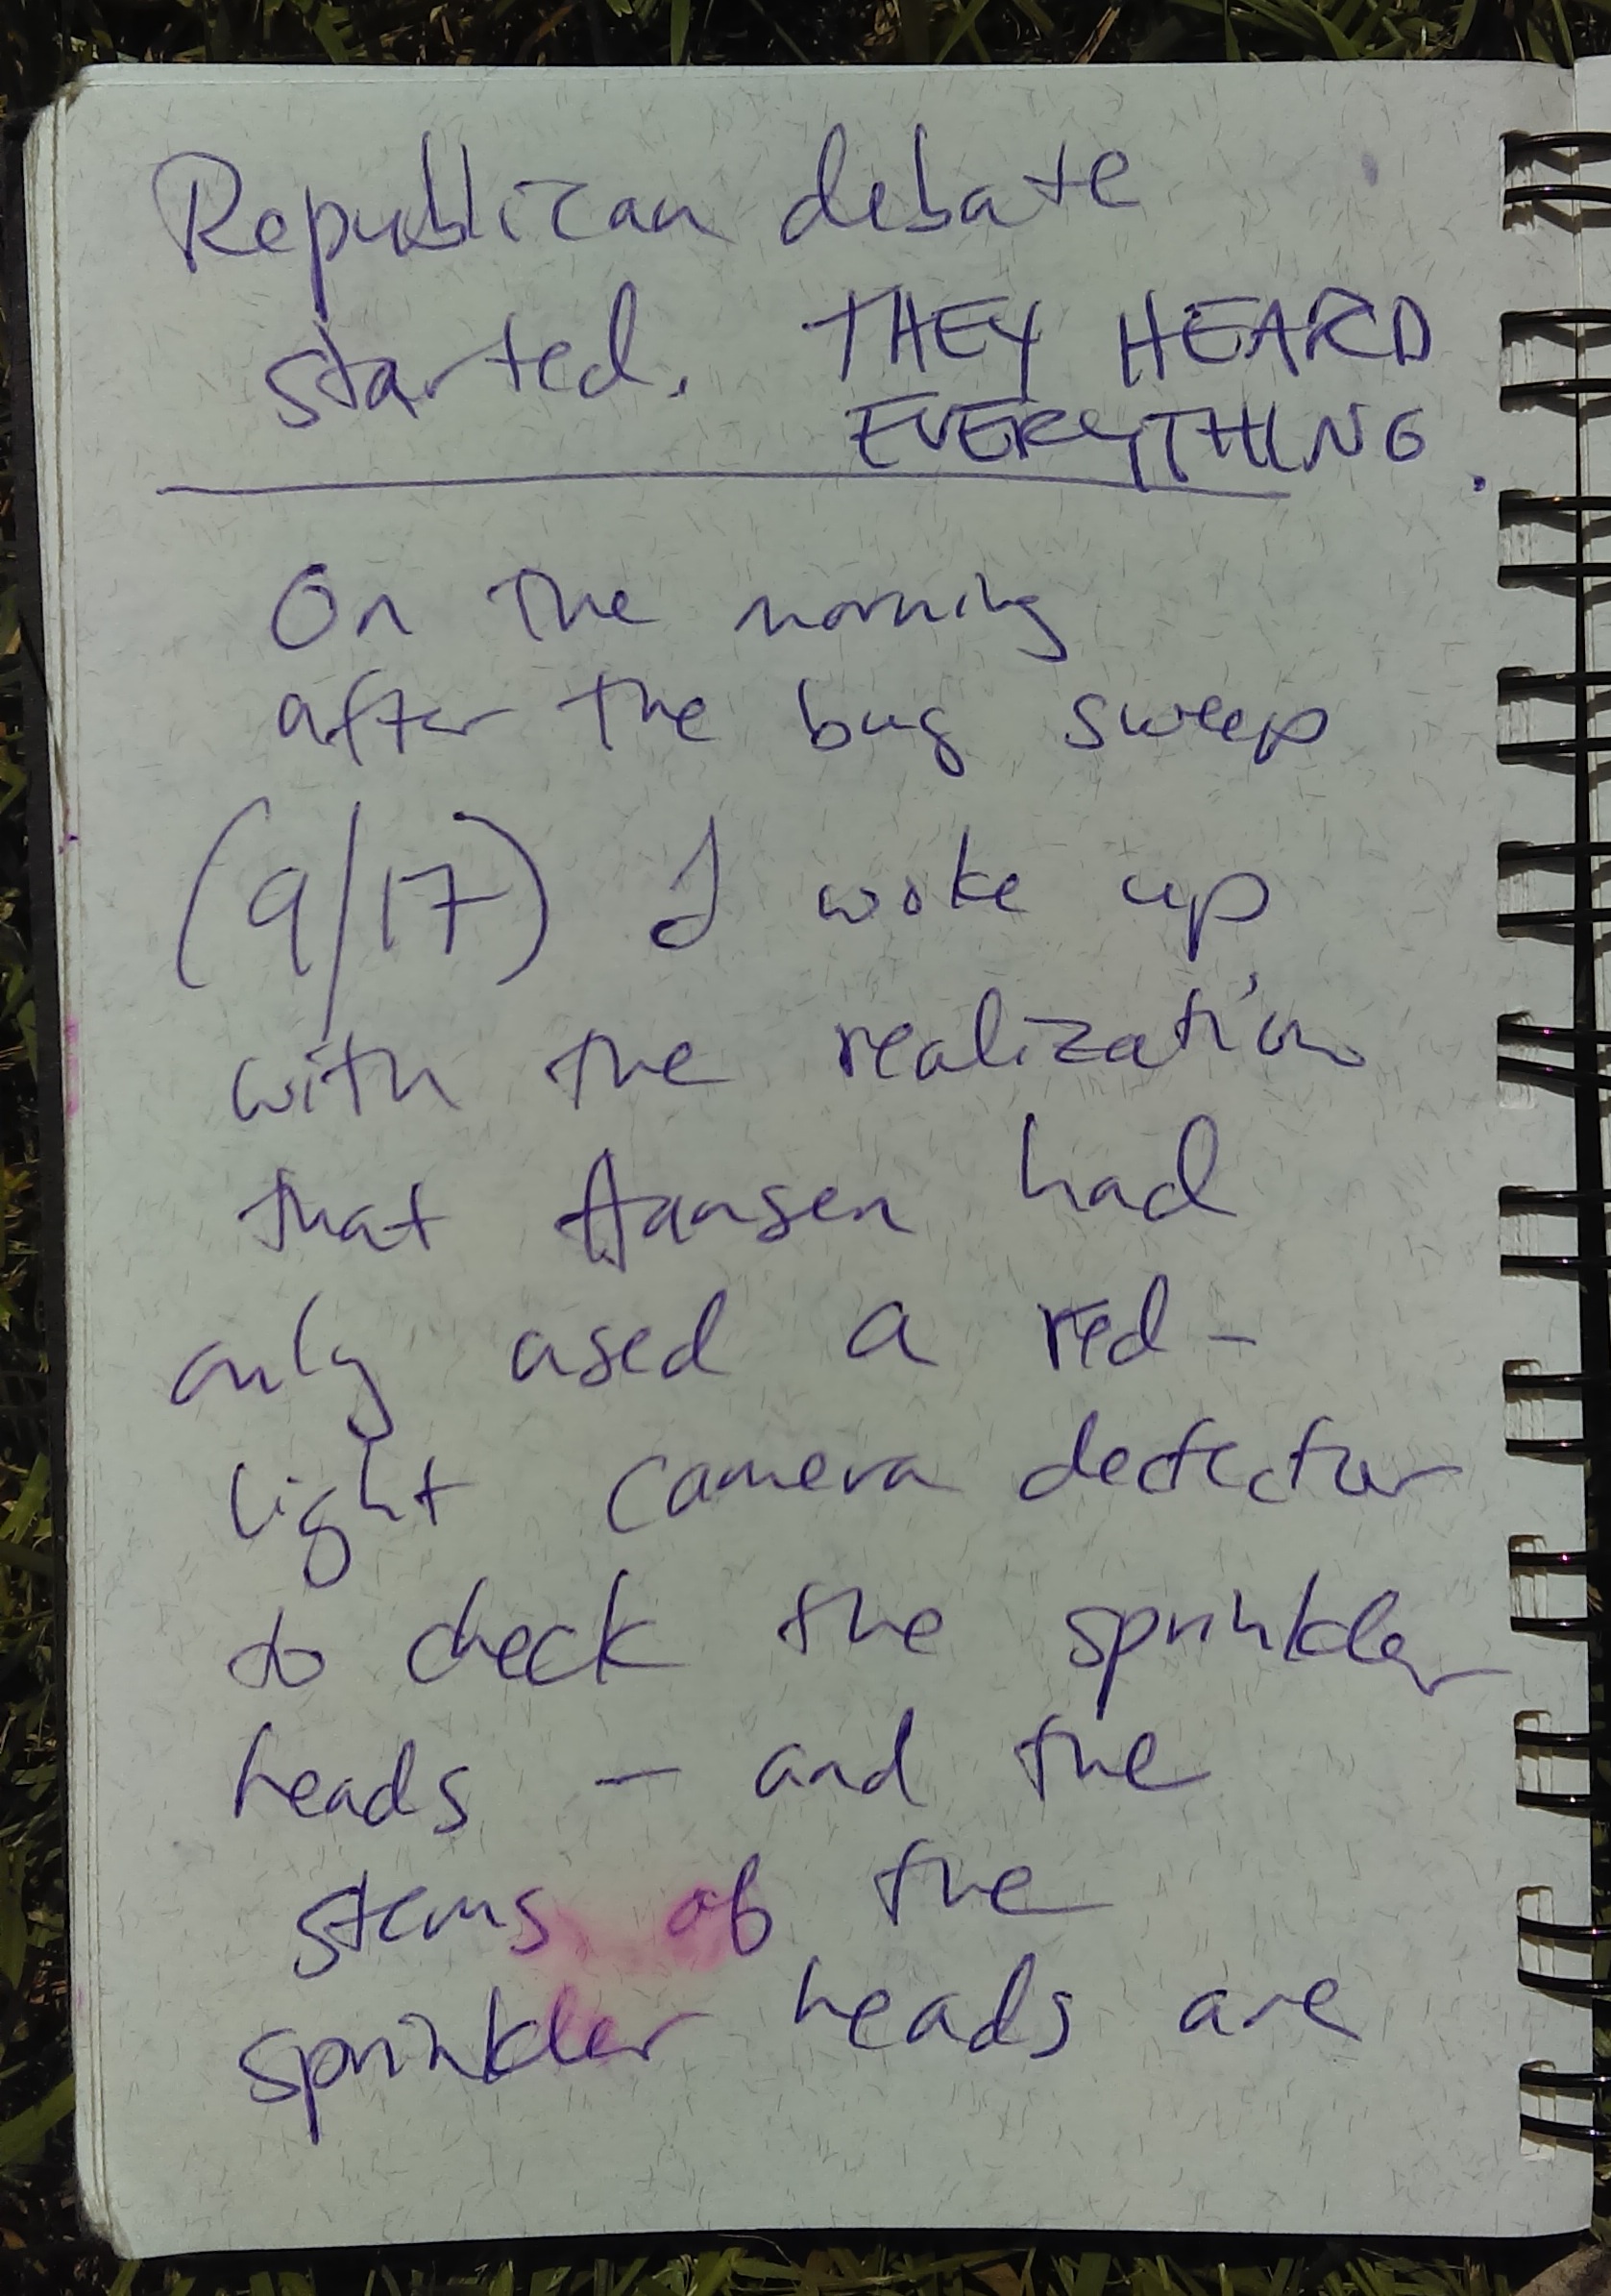 Republican debate
started. THEY HEARD
EVERYTHING.
On the morning
after the bug sweep
(9/17) I woke up
with the realization
that Hansen had
only used a red-
light camera detector
to check the sprinkler
heads - and the
stems of the
sprinkler heads are